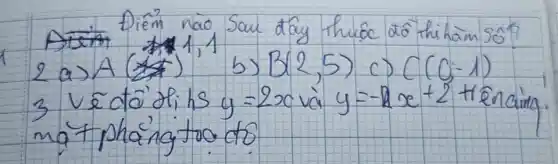 Điểm nào Sau đây thuộc đồ thị hàm số?
1,1
2 a) A ( ) b) B(2,5) c) C(0,-1)
3 Vẽ đồ thị hs y = 2x và y = -x + 2 trên cùng
mặt phẳng toạ độ